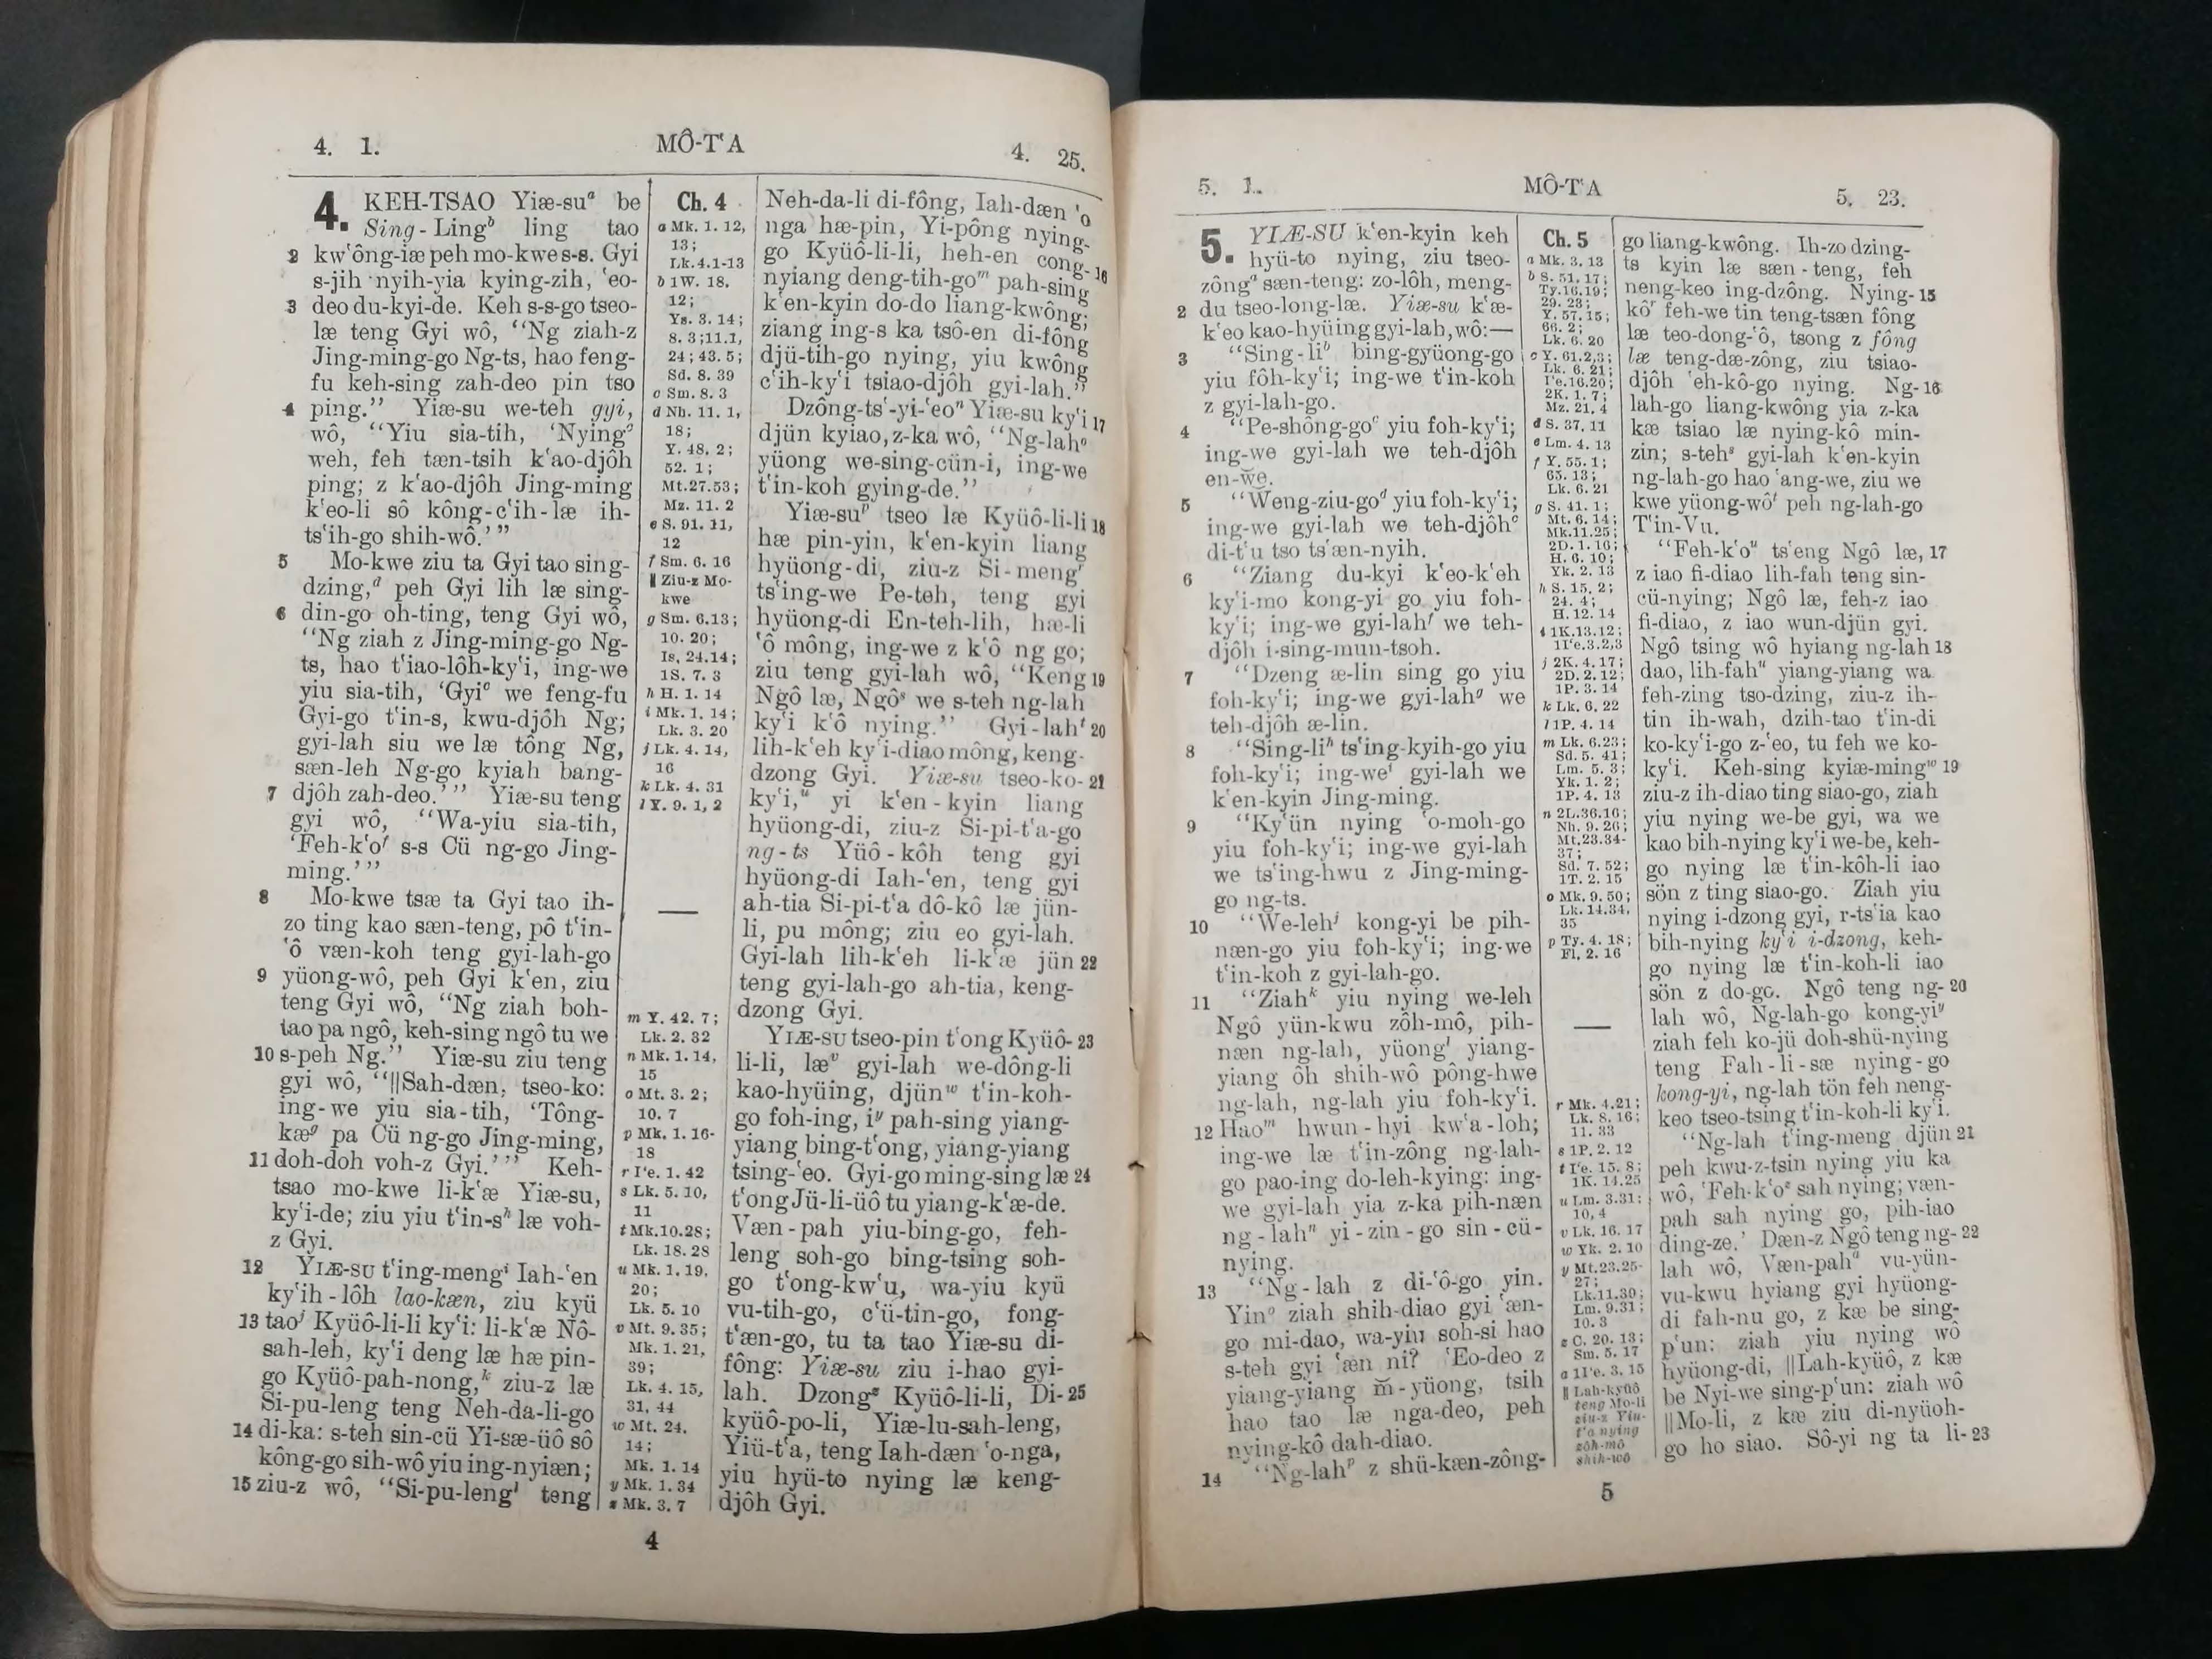 4. 1. MÔ-TʻA 4. 25.
4. KEH-TSAO Yiæ-suᵃ be
Sing-Lingᵇ ling tao
2 kwʻông-iæ peh mo-kwe s-s. Gyi
s-jih nyih-yia kying-zih, ʻeo-
3 deo du-kyi-de. Keh s-s-go tseo-
læ teng Gyi wô, “Ng ziah-z
Jing-ming-go Ng-ts, hao feng-
fu keh-sing zah-deo pin tso
4 ping.” Yiæ-su we-teh gyi,
wô, “Yiu sia-tih, ‘Nyingᶜ
weh, feh tæn-tsih kʻao-djôh
ping; z kʻao-djôh Jing-ming
kʻeo-li sô kông-cʻih-læ ih-
tsʻih-go shih-wô.’ ”
5 Mo-kwe ziu ta Gyi tao sing-
dzing,ᵈ peh Gyi lih læ sing-
6 din-go oh-ting, teng Gyi wô,
“Ng ziah z Jing-ming-go Ng-
ts, hao tʻiao-lôh-kyʻi, ing-we
yiu sia-tih, ‘Gyiᵉ we feng-fu
Gyi-go tʻin-s, kwu-djôh Ng;
gyi-lah siu we læ tông Ng,
sæn-leh Ng-go kyiah bang-
7 djôh zah-deo.’ ” Yiæ-su teng
gyi wô, “Wa-yiu sia-tih,
‘Feh-kʻoᶠ s-s Cü ng-go Jing-
ming.’ ”
8 Mo-kwe tsæ ta Gyi tao ih-
zo ting kao sæn-teng, pô tʻin-
ʻô væn-koh teng gyi-lah-go
9 yüong-wô, peh Gyi kʻen, ziu
teng Gyi wô, “Ng ziah boh-
tao pa ngô, keh-sing ngô tu we
10 s-peh Ng.” Yiæ-su ziu teng
gyi wô, “‖Sah-dæn, tseo-ko:
ing-we yiu sia-tih, ‘Tông-
kæᵍ pa Cü ng-go Jing-ming,
11 doh-doh voh-z Gyi.’ ” Keh-
tsao mo-kwe li-kʻæ Yiæ-su,
kyʻi-de; ziu yiu tʻin-sʰ læ voh-
z Gyi.
12 YIÆ-SU tʻing-mengⁱ Iah-ʻen
kyʻih-lôh lao-kæn, ziu kyü
13 taoʲ Kyüô-li-li kyʻi: li-kʻæ Nô-
sah-leh, kyʻi deng læ hæ pin-
go Kyüô-pah-nong,ᵏ ziu-z læ
Si-pu-leng teng Neh-da-li-go
14 di-ka: s-teh sin-cü Yi-sæ-üô sô
kông-go sih-wô yiu ing-nyiæn;
15 ziu-z wô, “Si-pu-lengˡ teng
Ch. 4
a Mk. 1. 12,
13;
Lk.4.1-13
b 1W. 18.
12;
Ys. 3. 14;
8. 3;11.1,
24; 43. 5;
Sd. 8. 39
c Sm. 8. 3
d Nh. 11. 1,
18;
Y. 48. 2;
52. 1;
Mt.27.53;
Mz. 11. 2
e S. 91. 11,
12
f Sm. 6. 16
‖ Ziu-z Mo-
kwe
g Sm. 6.13;
10. 20;
Is. 24.14;
1S. 7. 3
h H. 1. 14
i Mk. 1. 14;
Lk. 3. 20
j Lk. 4. 14,
16
k Lk. 4. 31
l Y. 9. 1, 2
m Y. 42. 7;
Lk. 2. 32
n Mk. 1. 14,
15
o Mt. 3. 2;
10. 7
p Mk. 1. 16-
18
r Iʻe. 1. 42
s Lk. 5. 10,
11
t Mk.10.28;
Lk. 18. 28
u Mk. 1. 19,
20;
Lk. 5. 10
v Mt. 9. 35;
Mk. 1. 21,
39;
Lk. 4. 15,
31, 44
w Mt. 24.
14;
Mk. 1. 14
y Mk. 1. 34
z Mk. 3. 7
Neh-da-li di-fông, Iah-dæn ʻo
nga hæ-pin, Yi-pông nying-
go Kyüô-li-li, heh-en cong- 16
nyiang deng-tih-goᵐ pah-sing
kʻen-kyin do-do liang-kwông;
ziang ing-s ka tsô-en di-fông
djü-tih-go nying, yiu kwông
cʻih-kyʻi tsiao-djôh gyi-lah.”
Dzông-tsʻ-yi-ʻeoⁿ Yiæ-su kyʻi 17
djün kyiao, z-ka wô, “Ng-lahᵒ
yüong we-sing-cün-i, ing-we
tʻin-koh gying-de.”
Yiæ-suᵖ tseo læ Kyüô-li-li 18
hæ pin-yin, kʻen-kyin liang
hyüong-di, ziu-z Si-mengʳ
tsʻing-we Pe-teh, teng gyi
hyüong-di En-teh-lih, hæ-li
ʻô mông, ing-we z kʻô ng go;
ziu teng gyi-lah wô, “Keng 19
Ngô læ, Ngôˢ we s-teh ng-lah
kyʻi kʻô nying.” Gyi-lahᵗ 20
lih-kʻeh kyʻi-diao mông, keng-
dzong Gyi. Yiæ-su tseo-ko- 21
kyʻi,ᵘ yi kʻen-kyin liang
hyüong-di, ziu-z Si-pi-tʻa-go
ng-ts Yüô-kôh teng gyi
hyüong-di Iah-ʻen, teng gyi
ah-tia Si-pi-tʻa dô-kô læ jün-
li, pu mông; ziu eo gyi-lah.
Gyi-lah lih-kʻeh li-kʻæ jün 22
teng gyi-lah-go ah-tia, keng-
dzong Gyi.
YIÆ-SU tseo-pin tʻong Kyüô- 23
li-li, læᵛ gyi-lah we-dông-li
kao-hyüing, djünʷ tʻin-koh-
go foh-ing, iʸ pah-sing yiang-
yiang bing-tʻong, yiang-yiang
tsing-ʻeo. Gyi-go ming-sing læ 24
tʻong Jü-li-üô tu yiang-kʻæ-de.
Væn-pah yiu-bing-go, feh-
leng soh-go bing-tsing soh-
go tʻong-kwʻu, wa-yiu kyü
vu-tih-go, cʻü-tin-go, fong-
tʻæn-go, tu ta tao Yiæ-su di-
fông: Yiæ-su ziu i-hao gyi-
lah. Dzongᶻ Kyüô-li-li, Di- 25
kyüô-po-li, Yiæ-lu-sah-leng,
Yiü-tʻa, teng Iah-dæn ʻo-nga,
yiu hyü-to nying læ keng-
djôh Gyi.
4
5. 1. MÔ-TʻA 5. 23.
5. YIÆ-SU kʻen-kyin keh
hyü-to nying, ziu tseo-
zôngᵃ sæn-teng: zo-lôh, meng-
2 du tseo-long-læ. Yiæ-su kʻæ-
kʻeo kao-hyüing gyi-lah, wô:—
3 “Sing-liᵇ bing-gyüong-go
yiu fôh-kyʻi; ing-we tʻin-koh
z gyi-lah-go.
4 “Pe-shông-goᶜ yiu foh-kyʻi;
ing-we gyi-lah we teh-djôh
en-we.
5 “Weng-ziu-goᵈ yiu foh-kyʻi;
ing-we gyi-lah we teh-djôhᵉ
di-tʻu tso tsʻæn-nyih.
6 “Ziang du-kyi kʻeo-kʻeh
kyʻi-mo kong-yi go yiu foh-
kyʻi; ing-we gyi-lahᶠ we teh-
djôh i-sing-mun-tsoh.
7 “Dzeng æ-lin sing go yiu
foh-kyʻi; ing-we gyi-lahᵍ we
teh-djôh æ-lin.
8 “Sing-liʰ tsʻing-kyih-go yiu
foh-kyʻi; ing-weⁱ gyi-lah we
kʻen-kyin Jing-ming.
9 “Kyʻün nying ʻo-moh-go
yiu foh-kyʻi; ing-we gyi-lah
we tsʻing-hwu z Jing-ming-
go ng-ts.
10 “We-lehʲ kong-yi be pih-
næn-go yiu foh-kyʻi; ing-we
tʻin-koh z gyi-lah-go.
11 “Ziahᵏ yiu nying we-leh
Ngô yün-kwu zôh-mô, pih-
næn ng-lah, yüongˡ yiang-
yiang ôh shih-wô pông-hwe
ng-lah, ng-lah yiu foh-kyʻi.
12 Haoᵐ hwun-hyi kwʻa-loh;
ing-we læ tʻin-zông ng-lah-
go pao-ing do-leh-kying: ing-
we gyi-lah yia z-ka pih-næn
ng-lahⁿ yi-zin-go sin-cü-
nying.
13 “Ng-lah z di-ʻô-go yin.
Yinᵒ ziah shih-diao gyi ʻæn-
go mi-dao, wa-yiu soh-si hao
s-teh gyi ʻæn ni? ʻEo-deo z
yiang-yiang m̆-yüong, tsih
hao tao læ nga-deo, peh
nying-kô dah-diao.
14 “Ng-lahᵖ z shü-kæn-zông-
Ch. 5
a Mk. 3. 13
b S. 51. 17;
Ty.16.19;
29. 23;
Y. 57. 15;
66. 2;
Lk. 6. 20
c Y. 61.2,3;
Lk. 6. 21;
Iʻe.16.20;
2K. 1. 7;
Mz. 21. 4
d S. 37. 11
e Lm. 4. 13
f Y. 55. 1;
65. 13;
Lk. 6. 21
g S. 41. 1;
Mt. 6. 14;
Mk.11.25;
2D. 1. 16;
H. 6. 10;
Yk. 2. 13
h S. 15. 2;
24. 4;
H. 12. 14
i 1K.13.12;
1Iʻe.3.2,3
j 2K. 4. 17;
2D. 2. 12;
1P. 3. 14
k Lk. 6. 22
l 1P. 4. 14
m Lk. 6.23;
Sd. 5. 41;
Lm. 5. 3;
Yk. 1. 2;
1P. 4. 13
n 2L.36.16;
Nh. 9. 26;
Mt.23.34-
37;
Sd. 7. 52;
1T. 2. 15
o Mk. 9. 50;
Lk. 14.34,
35
p Ty. 4. 18;
Fl. 2. 16
r Mk. 4.21;
Lk. 8. 16;
11. 33
s 1P. 2. 12
t Iʻe. 15. 8;
1K. 14.25
u Lm. 3.31;
10, 4
v Lk. 16. 17
w Yk. 2. 10
y Mt.23.25-
27;
Lk.11.30;
Lm. 9.31;
10. 3
z C. 20. 13;
Sm. 5. 17
a 1Iʻe. 3. 15
‖ Lah-kyüô
teng Mo-li
ziu-z Yiu-
tʻa nying
zôh-mô
shih-wô
go liang-kwông. Ih-zo dzing-
ts kyin læ sæn-teng, feh
neng-keo ing-dzông. Nying- 15
kôʳ feh-we tin teng-tsæn fông
læ teo-dong-ʻô, tsong z fông
læ teng-dæ-zông, ziu tsiao-
djôh ʻeh-kô-go nying. Ng- 16
lah-go liang-kwông yia z-ka
kæ tsiao læ nying-kô min-
zin; s-tehˢ gyi-lah kʻen-kyin
ng-lah-go hao ʻang-we, ziu we
kwe yüong-wôᵗ peh ng-lah-go
Tʻin-Vu.
“Feh-kʻoᵘ tsʻeng Ngô læ, 17
z iao fi-diao lih-fah teng sin-
cü-nying; Ngô læ, feh-z iao
fi-diao, z iao wun-djün gyi.
Ngô tsing wô hyiang ng-lah 18
dao, lih-fahᵘ yiang-yiang wa
feh-zing tso-dzing, ziu-z ih-
tin ih-wah, dzih-tao tʻin-di
ko-kyʻi-go z-ʻeo, tu feh we ko-
kyʻi. Keh-sing kyiæ-mingʷ 19
ziu-z ih-diao ting siao-go, ziah
yiu nying we-be gyi, wa we
kao bih-nying kyʻi we-be, keh-
go nying læ tʻin-kôh-li iao
sön z ting siao-go. Ziah yiu
nying i-dzong gyi, r-tsʻia kao
bih-nying kyʻi i-dzong, keh-
go nying læ tʻin-koh-li iao
sön z do-go. Ngô teng ng- 20
lah wô, Ng-lah-go kong-yiʸ
ziah feh ko-jü doh-shü-nying
teng Fah-li-sæ nying-go
kong-yi, ng-lah tön feh neng-
keo tseo-tsing tʻin-koh-li kyʻi.
“Ng-lah tʻing-meng djün 21
peh kwu-z-tsin nying yiu ka
wô, ‘Feh-kʻoᶻ sah nying; væn-
pah sah nying go, pih-iao
ding-ze.’ Dæn-z Ngô teng ng- 22
lah wô, Væn-pahᵃ vu-yün-
vu-kwu hyiang gyi hyüong-
di fah-nu go, z kæ be sing-
pʻun: ziah yiu nying wô
hyüong-di, ‖Lah-kyüô, z kæ
be Nyi-we sing-pʻun: ziah wô
‖Mo-li, z kæ ziu di-nyüoh-
go ho siao. Sô-yi ng ta li- 23
5